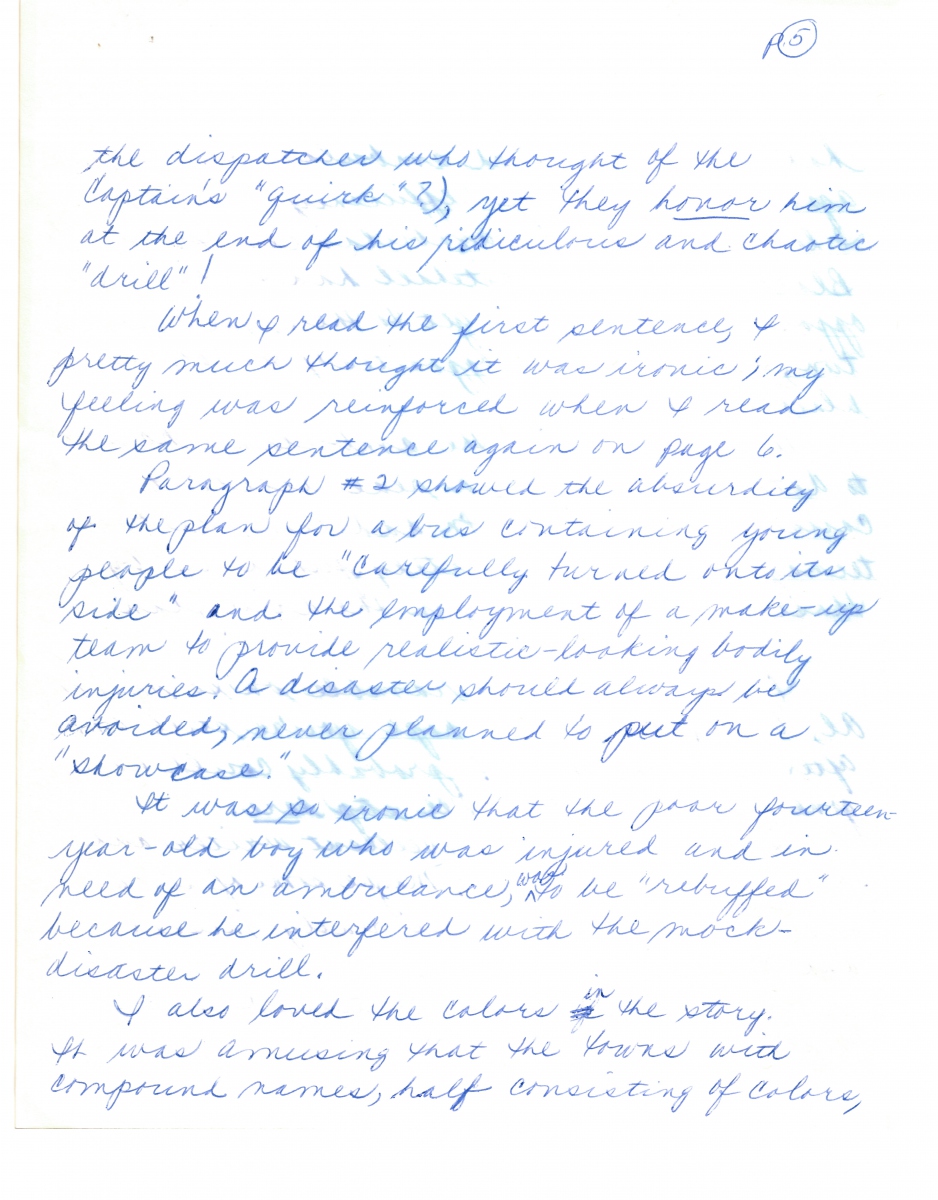 p. 5
the dispatcher who thought of the
Captain's "quirk"?), yet they honor him
at the end of his ridiculous and chaotic
"drill"!
When I read the first sentence, I
pretty much thought it was ironic; my
feeling was reinforced when I read
the same sentence again on page 6.
Paragraph #2 showed the absurdity
of the plan for a bus containing young
people to be "carefully turned onto its
side" and the employment of a make-up
team to provide realistic-looking bodily
injuries. A disaster should always be
avoided, never planned to put on a
"showcase."
It was so ironic that the poor fourteen-
year-old boy who was injured and in
need of an ambulance, was to be "rebuffed"
because he interfered with the mock-
disaster drill.
I also loved the colors in the story.
It was amusing that the towns with
compound names, half consisting of colors,